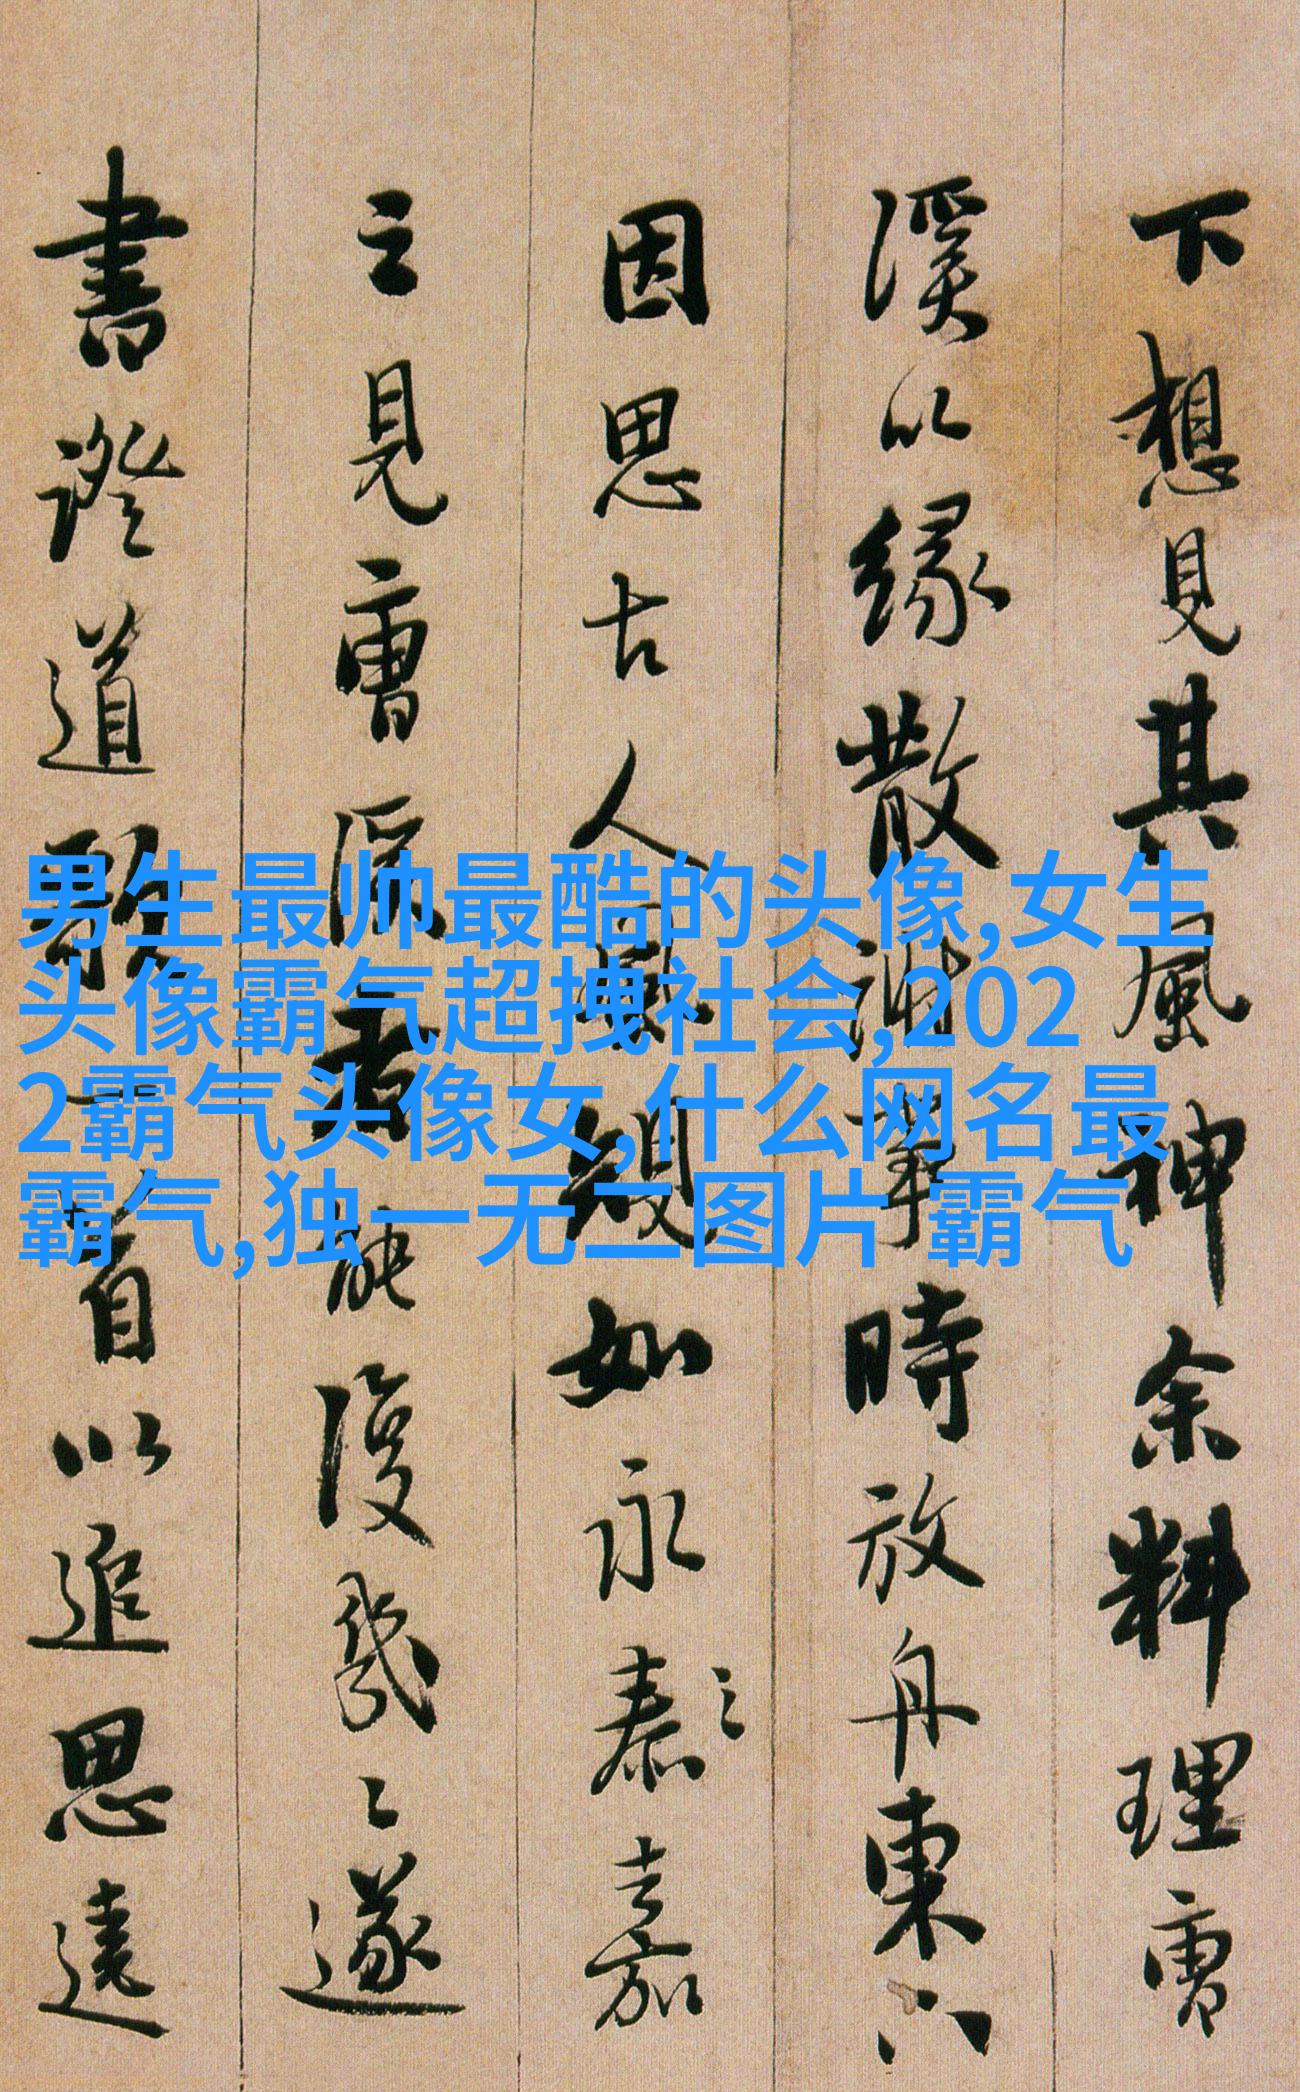 下想見其風神余料理雪
溪以緣散時放舟東
因思古人風規如永泰之嘉
見雪溪能復幾遂
書證道歌一首以追思遠
男生最帅最酷的头像,女生
头像霸气超拽社会,202
2霸气头像女,什么网名最
霸气,独一无二图片 霸气